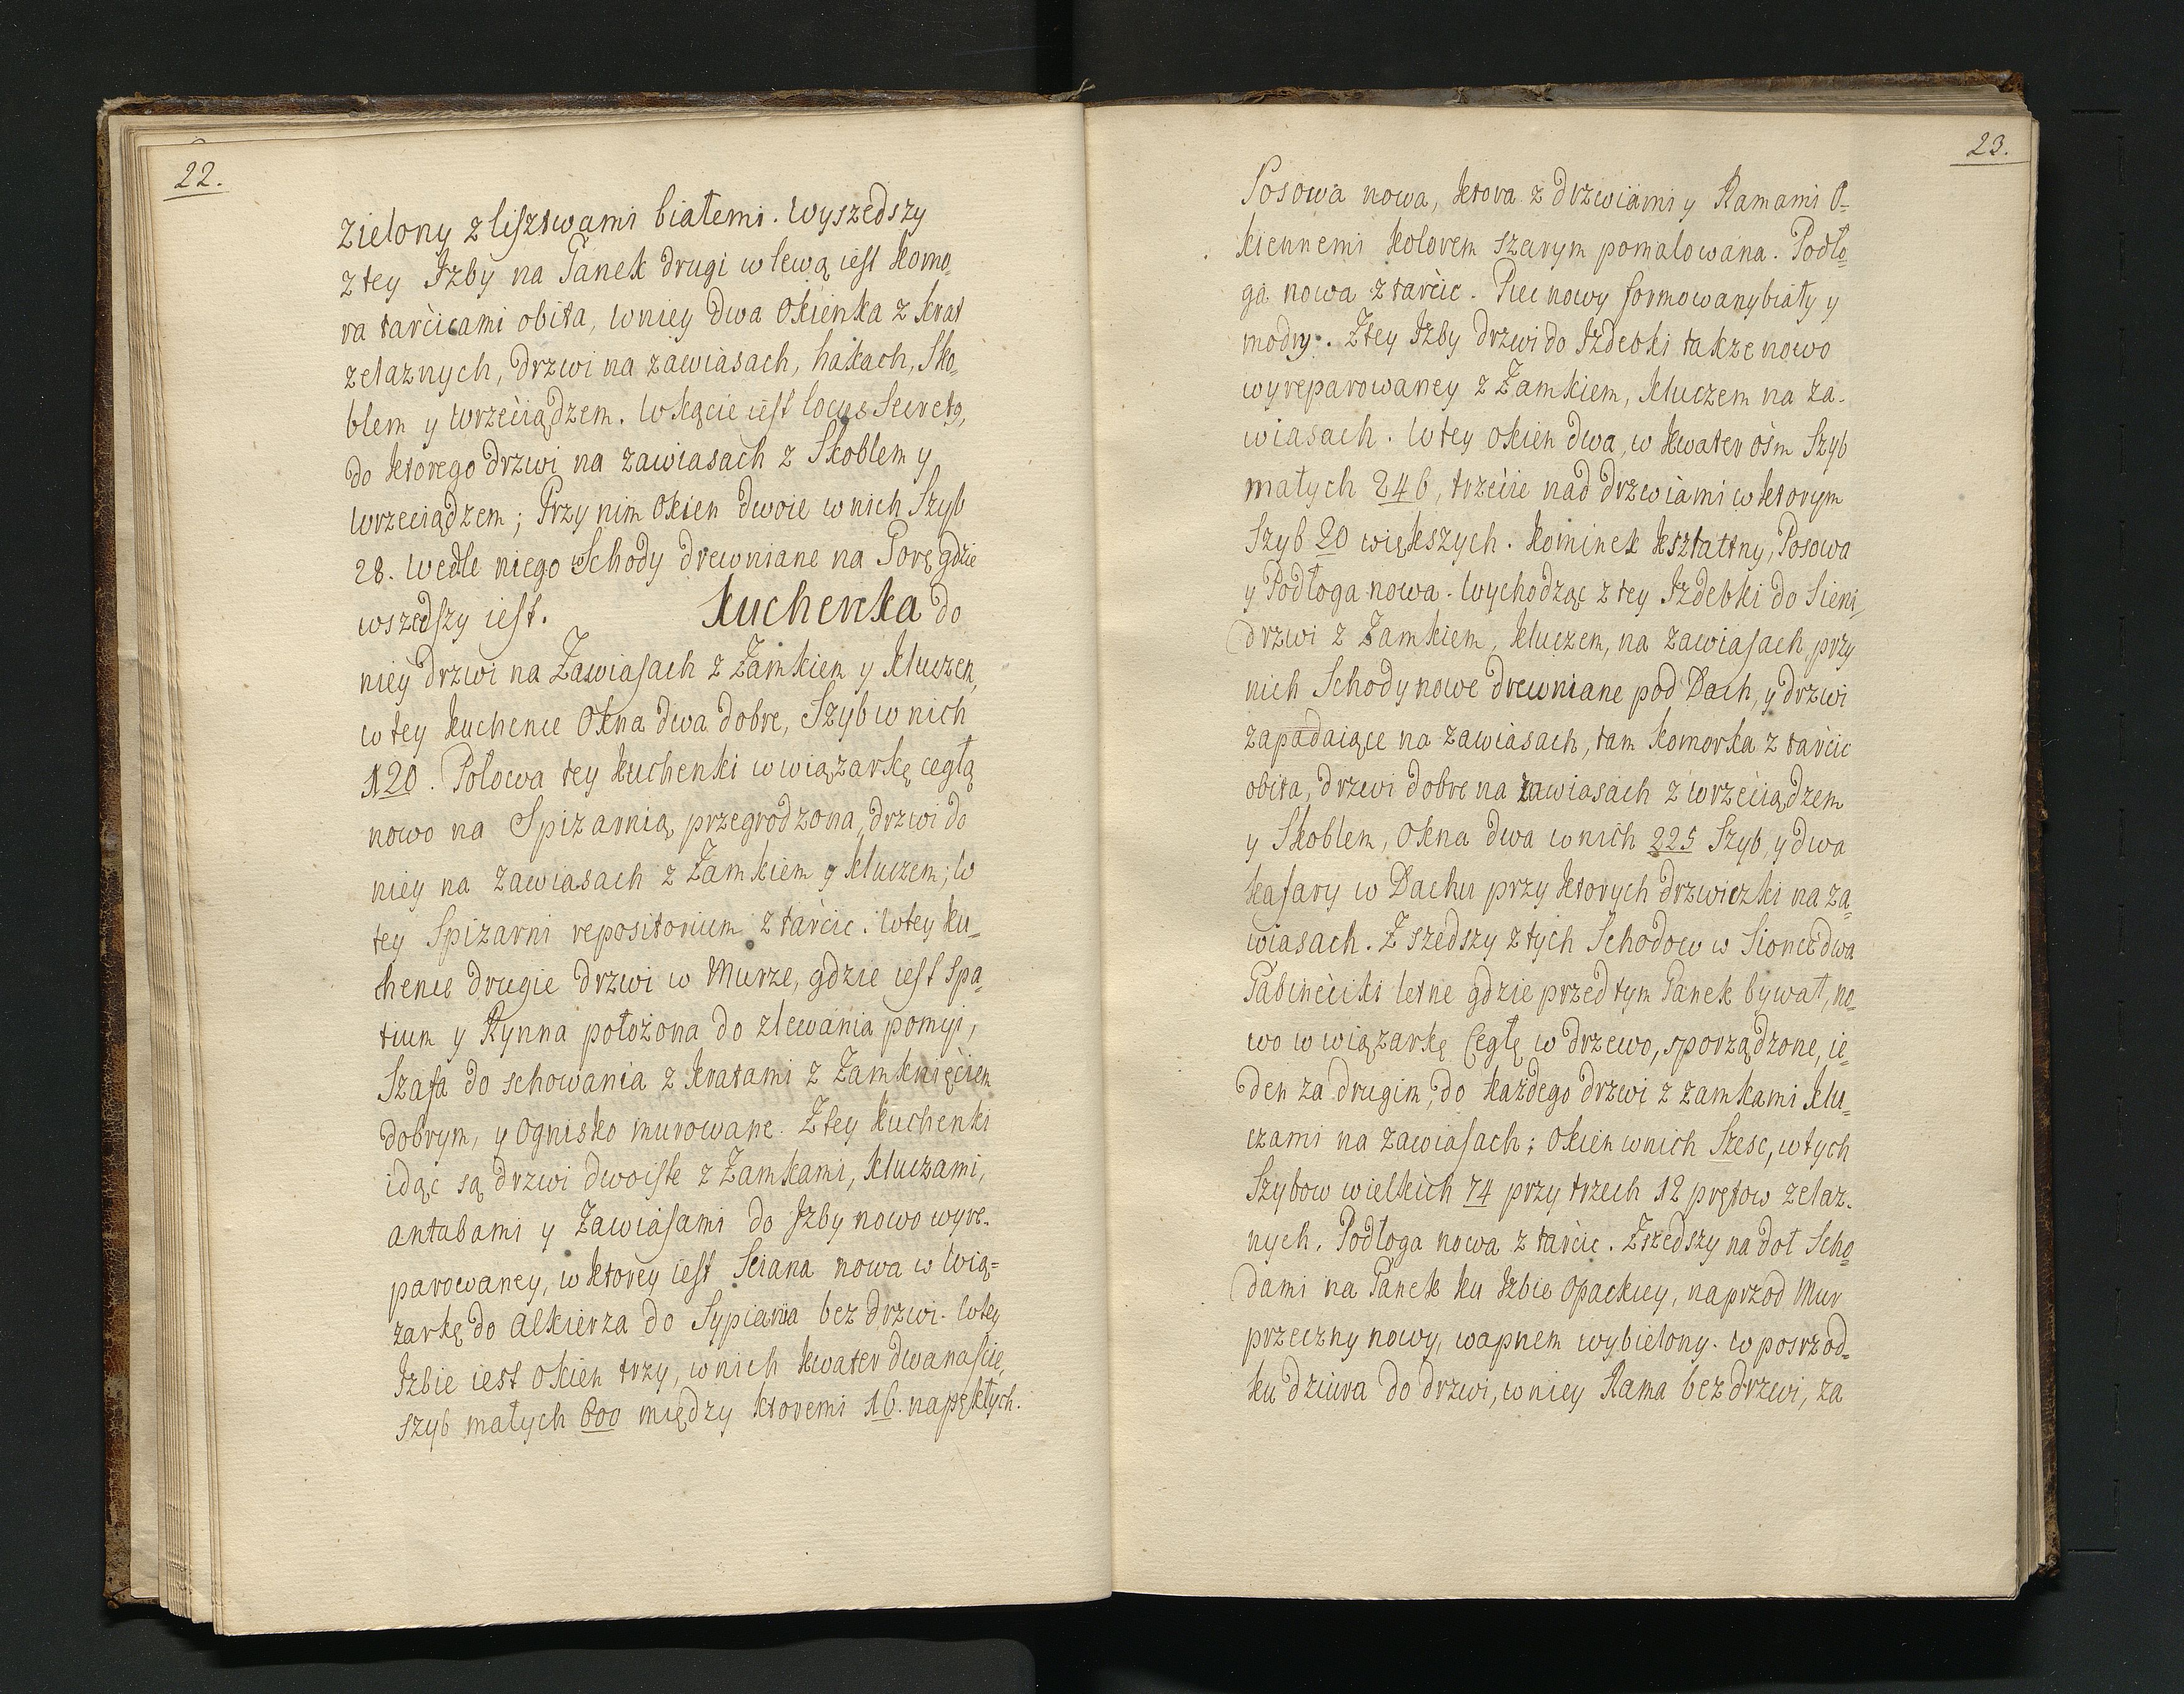 22.
Zielony z lisztwami białemi. Wyszedszy
z tey Izby na Ganek drugi w lewą iest Komo„
ra tarcicami obita, w niey dwa Okienka z krat
zelaznych, drzwi na zawiasach, hakach, Sko„
blem y Wrzeciądzem. W kącie iest locus Secretg,
do ktorego drzwi na zawiasach z Skoblem y
Wrzeciądzem; Przy nim Okien dwoie w nich Szyb
28. Wedle niego Schody drewniane na Gorę gdzie
wszedszy iest. Kuchenka do
niey drzwi na Zawiasach z Zamkiem y Kluczem,
w tey Kuchence Okna dwa dobre, Szyb w nich
120. Połowa tey Kuchenki w wiązarkę cegłą
nowo na Spizarnią przegrodzona, drzwi do
niey na zawiasach z Zamkiem y kluczem; W
tey Spizarni repositorium z tarcic. W tey Ku„
chence drugie drzwi w Murze, gdzie iest spa„
tium y Rynna położona do zlewania pomyi,
Szafa do schowania z kratami z Zamknięciem
dobrym, y Ognisko murowane. Z tey Kuchenki
idąc są drzwi dwoiste z Zamkami, kluczami,
antabami y Zawiasami do Izby nowo wyre-
parowaney, w ktorey iest Sciana nowa w Wią=
zarkę do Alkierza do Sypiania bez drzwi. W tey
Izbie iest Okien trzy, w nich kwater dwanaście,
szyb małych 600 między ktoremi 16. napękłych.
23.
Posowa nowa, ktora z drzwiami y Ramami O=
kiennemi kolorem szarym pomalowana. Podło„
ga nowa z tarcic. Piec nowy formowany biały y
modry. Z tey Izby drzwi do Izdebki takze nowo
wyreparowaney z Zamkiem, kluczem na za-
wiasach. W tey okien dwa, w kwater ośm Szyb
małych 246, trzecie nad drzwiami w ktorym
Szyb 20 większych. Kominek kształtny, Posowa
y Podłoga nowa. Wychodząc z tey Izdebki do Sieni,
drzwi z Zamkiem, kluczem, na zawiasach, przy
nich Schody nowe drewniane pod Dach, y drzwi
zapadaiące na zawiasach, tam komorka z tarcic
obita, drzwi dobre na zawiasach z wrzeciądzem
y Skoblem, Okna dwa w nich 225 Szyb, y dwa
kafary w Dachu przy ktorych drzwiczki na za„
wiasach. Z szedszy z tych Schodow w Sionce dwa
Gabineciki letne gdzie przed tym Ganek bywał, no„
wo w wiązarkę Cegłę w drzewo, sporządzone, ie„
den za drugim, do każdego drzwi z zamkami klu„
czami na zawiasach; Okien w nich Szesc, w tych
Szybow wielkich 74 przy trzech 12 prętow zelaz-
nych. Podłoga nowa z tarcic. Zszedszy na doł Scho„
dami na Ganek ku Izbie Opackiey, naprzod Mur
przeczny nowy, wapnem wybielony. W posrzod„
ku dziura do drzwi, w niey Rama bez drzwi, za